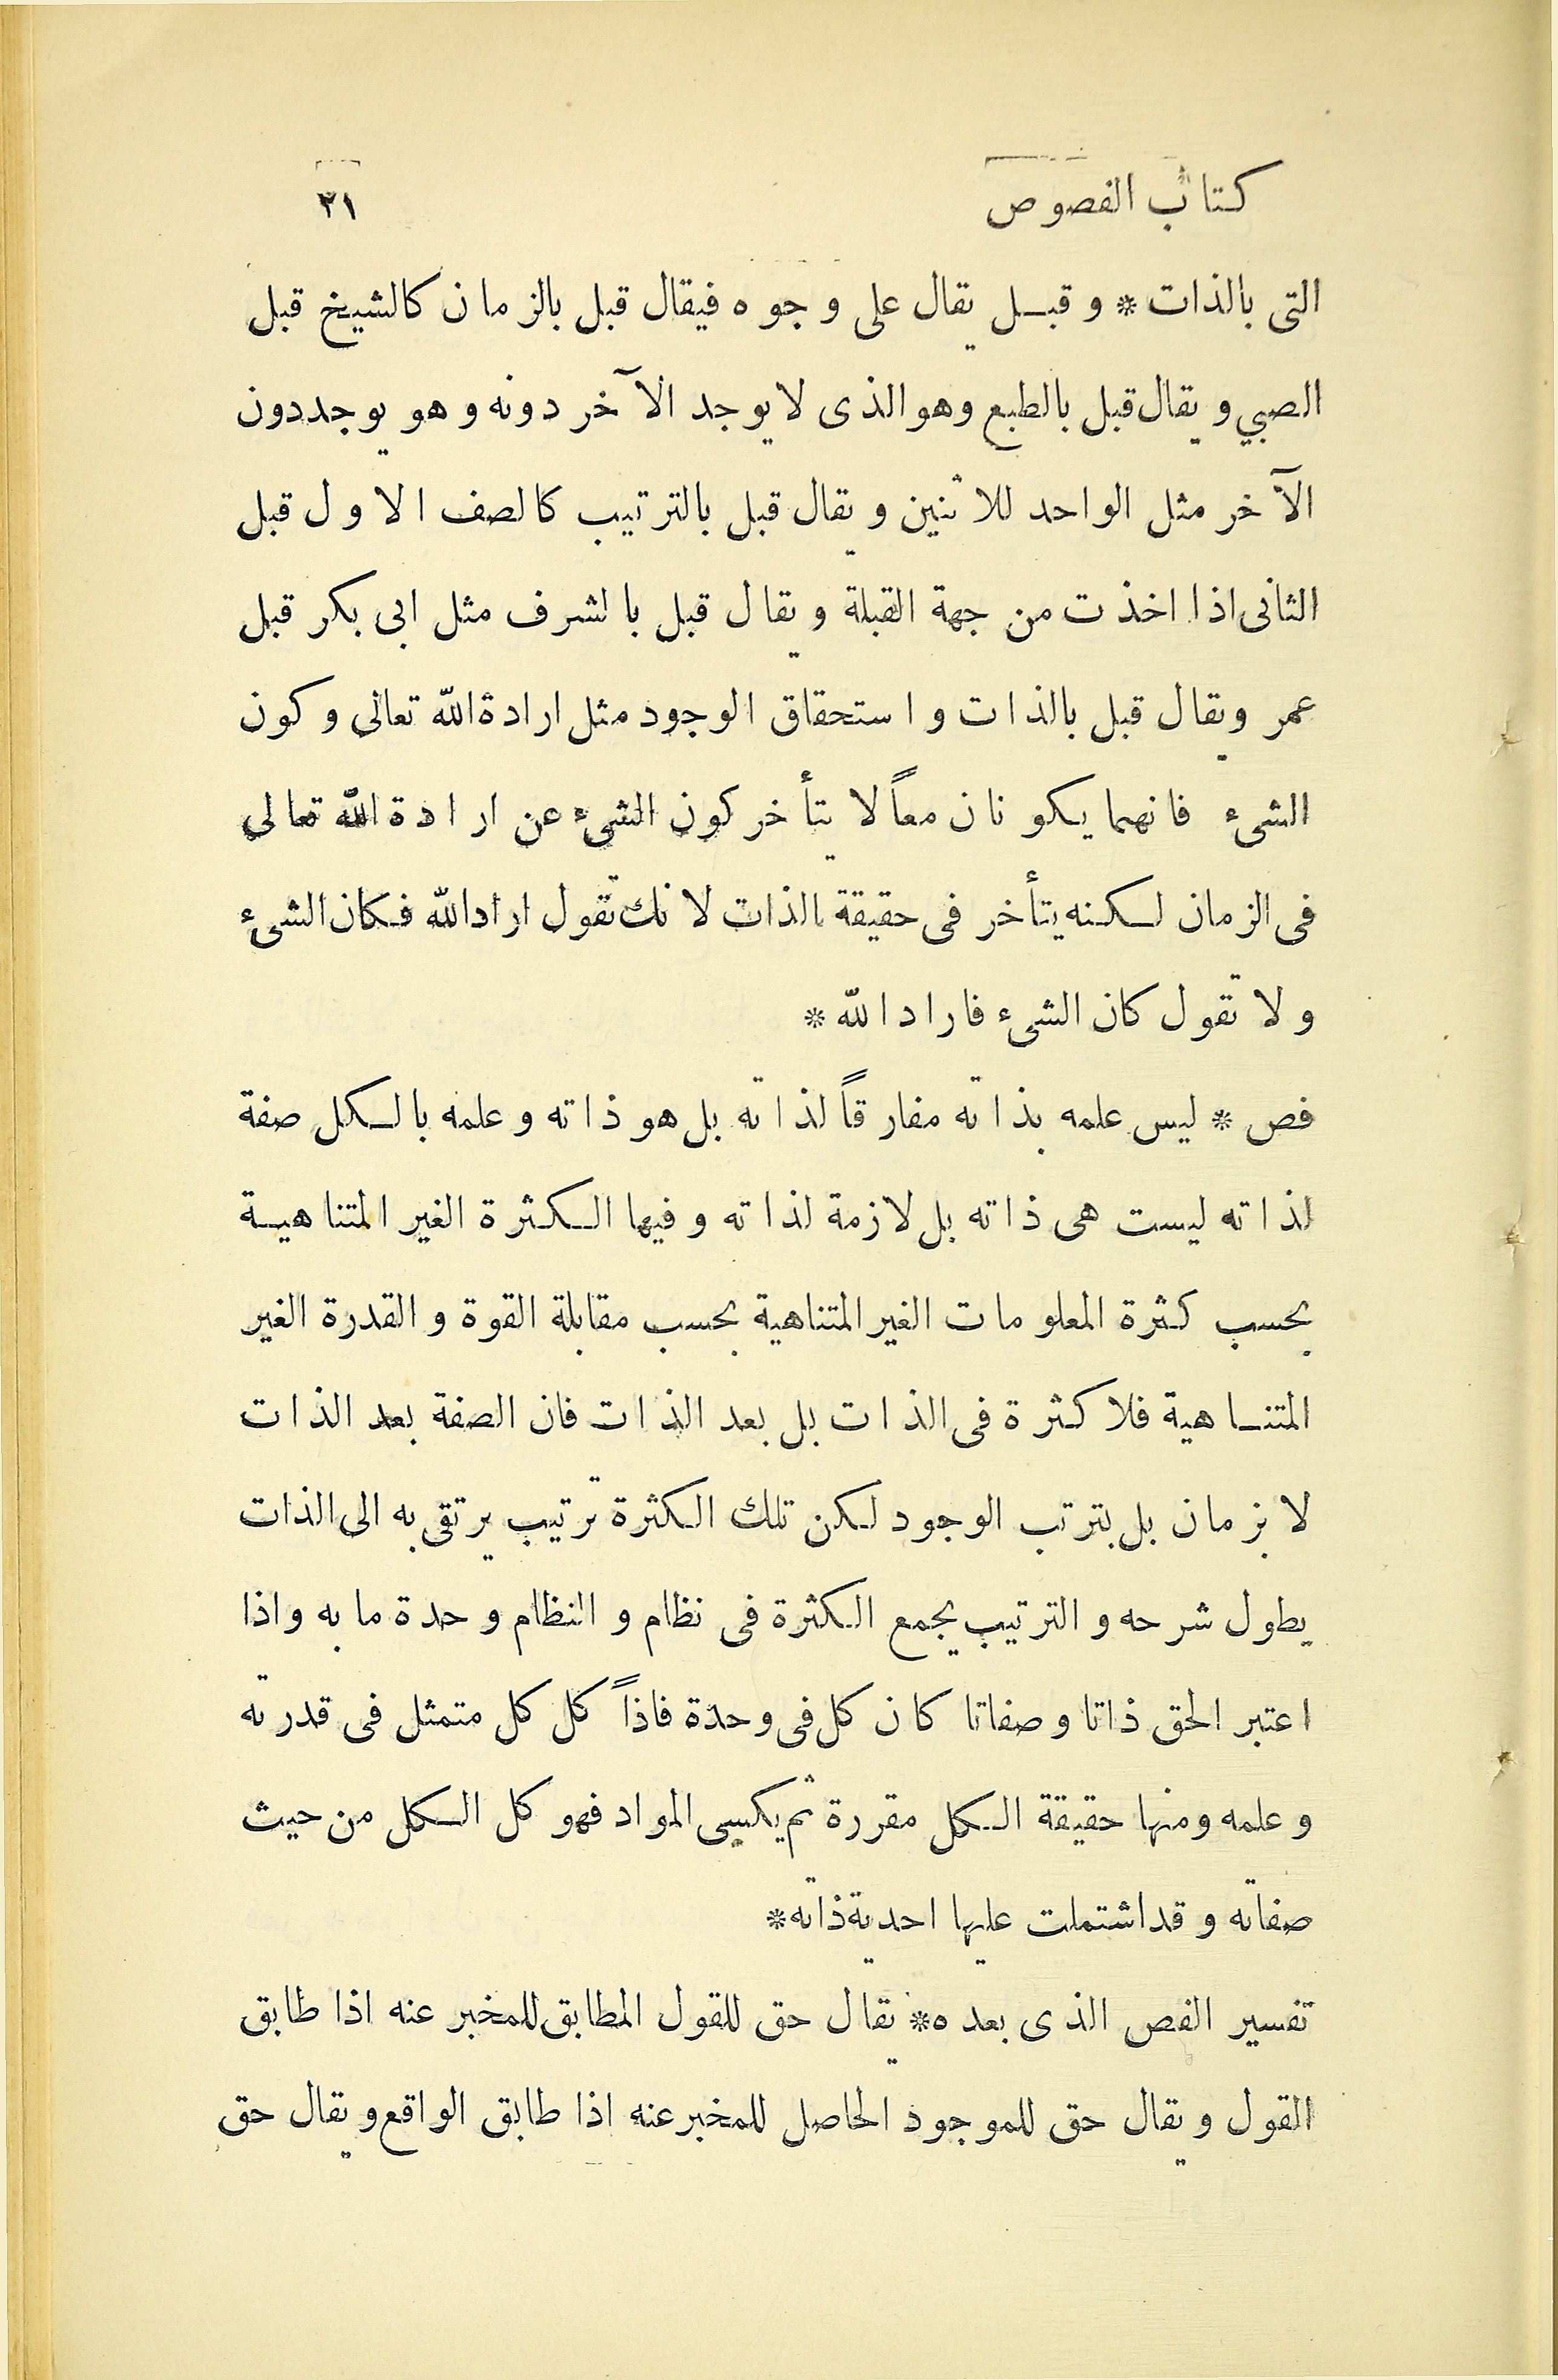 كتاب الفصوص ٢١
التى بالذات * وقبل يقال على وجوه فيقال قبل بالزمان كالشيخ قبل
الصبي ويقال قبل بالطبع وهو الذى لا يوجد الآخر دونه وهو يوجد دون
الآخر مثل الواحد للاثنين ويقال قبل بالترتيب كالصف الاول قبل
الثانى اذا اخذت من جهة القبلة ويقال قبل بالشرف مثل ابى بكر قبل
عمر ويقال قبل بالذات واستحقاق الوجود مثل ارادة الله تعالى وكون
الشىء فانهما يكونان معاً لا يتأخر كون الشىء عن ارادة الله تعالى
فى الزمان لكنه يتأخر فى حقيقة الذات لانك تقول اراد الله فكان الشىء
ولا تقول كان الشىء فاراد الله *
فص * ليس علمه بذاته مفارقاً لذاته بل هو ذاته وعلمه بالكل صفة
لذاته ليست هى ذاته بل لازمة لذاته وفيها الكثرة الغير المتناهية
بحسب كثرة المعلومات الغير المتناهية بحسب مقابلة القوة والقدرة الغير
المتناهية فلا كثرة فى الذات بل بعد الذات فان الصفة بعد الذات
لا بزمان بل بترتب الوجود لكن تلك الكثرة ترتيب يرتقى به الى الذات
يطول شرحه والترتيب يجمع الكثرة فى نظام والنظام وحدة ما به واذا
اعتبر الحق ذاتا وصفاتا كان كل فى وحدة فاذاً كل كل متمثل فى قدرته
وعلمه ومنها حقيقة الكل مقررة ثم يكسى المواد فهو كل الكل من حيث
صفاته وقد اشتملت عليها احدية ذاته*
تفسير الفص الذى بعده* يقال حق للقول المطابق للمخبر عنه اذا طابق
القول ويقال حق للموجود الحاصل للمخبر عنه اذا طابق الواقع ويقال حق